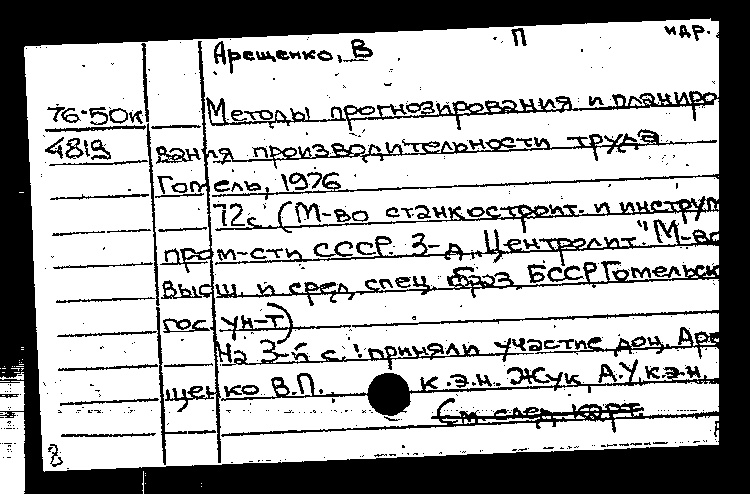 Арещенко, В П идр.
76-50к Методы прогнозирования и планиро
4819 вания производительности труда
Гомель, 1976
72с. (М-во станкостроит. и инструм
пром-сти СССР. З-д „Центролит." М-во
высш. и сред. спец. образ. БССР Гомельск
гос. ун-т)
На 3-й с.: приняли участие доц. Аре
щенко В.П., к.э.н. Жук, А.У, к.э.н.
См. след. карт.
8